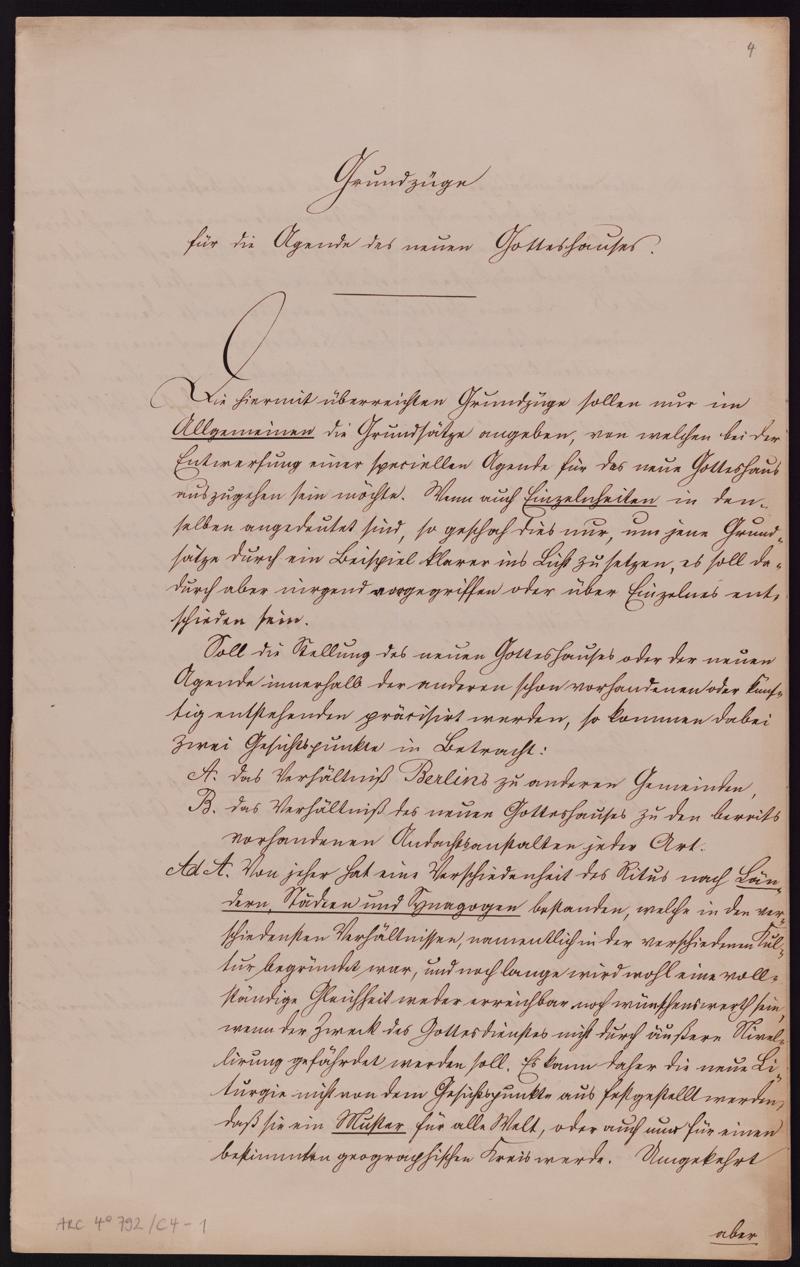 4
Grundzüge
für die Agende des neuen Gotteshauses.
Die hiermit überreichten Grundzüge sollen nur im
Allgemeinen die Grundsätze angeben, von welchen bei der
Entwerfung einer speciellen Agende für das neue Gotteshaus
auszugehen sein möchte. Wenn auch Einzelnheiten in den-
selben angedeutet sind, so geschah dies nur, um jene Grund-
sätze durch ein Beispiel klarer ins Licht zu setzen, es soll da-
durch aber nirgend vorgegriffen oder über Einzelnes ent-
schieden sein.
Soll die Stellung des neuen Gotteshauses oder der neuen
Agende innerhalb der anderen schon vorhandenen oder künf-
tig entstehenden präcisirt werden, so kommen dabei
zwei Gesichtspunkte in Betracht:
A. das Verhältniß Berlins zu anderen Gemeinden,
B. das Verhältniß des neuen Gotteshauses zu den bereits
vorhandenen Andachtsanstalten jeder Art.
Ad A. Von jeher hat eine Verschiedenheit des Ritus nach Län-
dern, Städten und Synagogen bestanden, welche in den ver-
schiedensten Verhältnissen, namentlich in der verschiedenen Kul-
tur begründet war, und noch lange wird wohl eine voll-
ständige Gleichheit weder erreichbar noch wünschenswerth sein,
wenn der Zweck des Gottesdienstes nicht durch äußere Nivel-
lirung gefährdet werden soll. Es kann daher die neue Li-
turgie nicht von dem Gesichtspunkte aus festgestellt werden,
daß sie ein Muster für alle Welt, oder auch nur für einen
bestimmten geographischen Kreis werde. Umgekehrt
aber
ARC 4° 792/C4-1